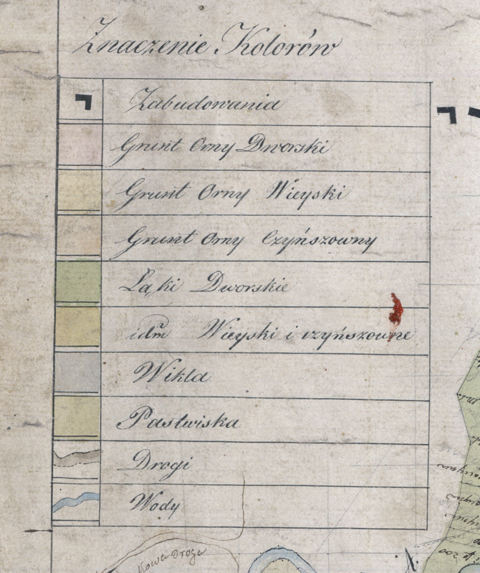 Znaczenie Kolorów
Zabudowania
Grunt Orny Dworski
Grunt Orny Wieyski
Grunt Orny Czyńszowny
Łąki Dworskie
idm Wieyski i czyńszowne
Wikla
Pastwiska
Drogi
Wody
Nowa Droga